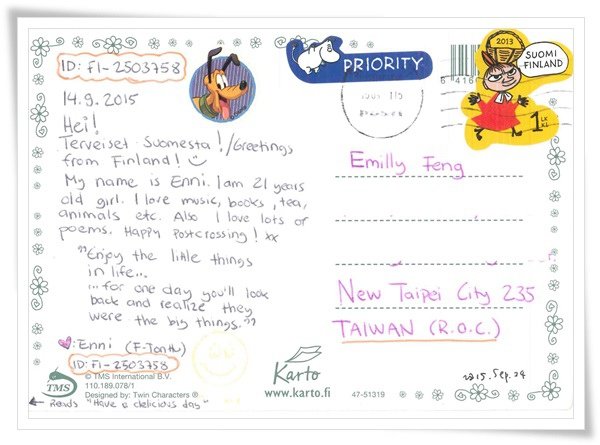 ID: FI-2503758
14.9. 2015
Hei!
Terveiset Suomesta!/Greetings
from Finland!
My name is Enni. I am 21 years
old girl. I love music, books, tea,
animals etc. Also I love lots of
poems. Happy Postcrossing! xx
"Enjoy the little things
in life...
...for one day you'll look
back and realize they
were the big things."
♥: Enni
ID: FI-2503758
© TMS International B.V.
110.189.078/1
Designed by: Twin Characters ®
TMS
← Reads "Have a delicious day"
PRIORITY
2013
SUOMI
FINLAND
1 LK
KL
Emilly Feng
New Taipei City 235
TAIWAN (R.O.C.)
Karto
www.karto.fi
47-51319
2015. Sep. 24